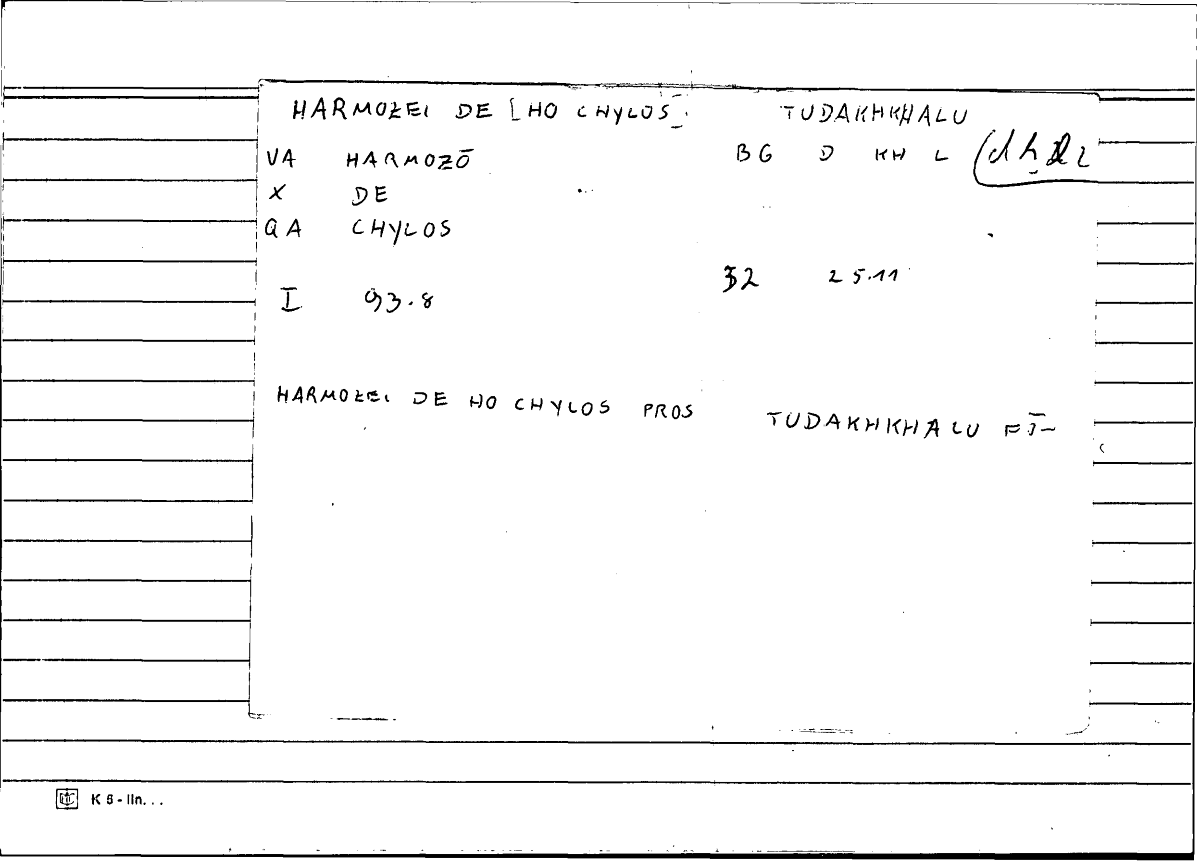 HARMOZEI DE [HO CHYLOS] TUDAKHKHALU
VA HARMOZŌ BG D KH L (dḫl
X DE
QA CHYLOS
I 93.8 32 25.11
HARMOZEI DE HO CHYLOS PROS TUDAKHKHALU FĪ
K 5 - lin. . .